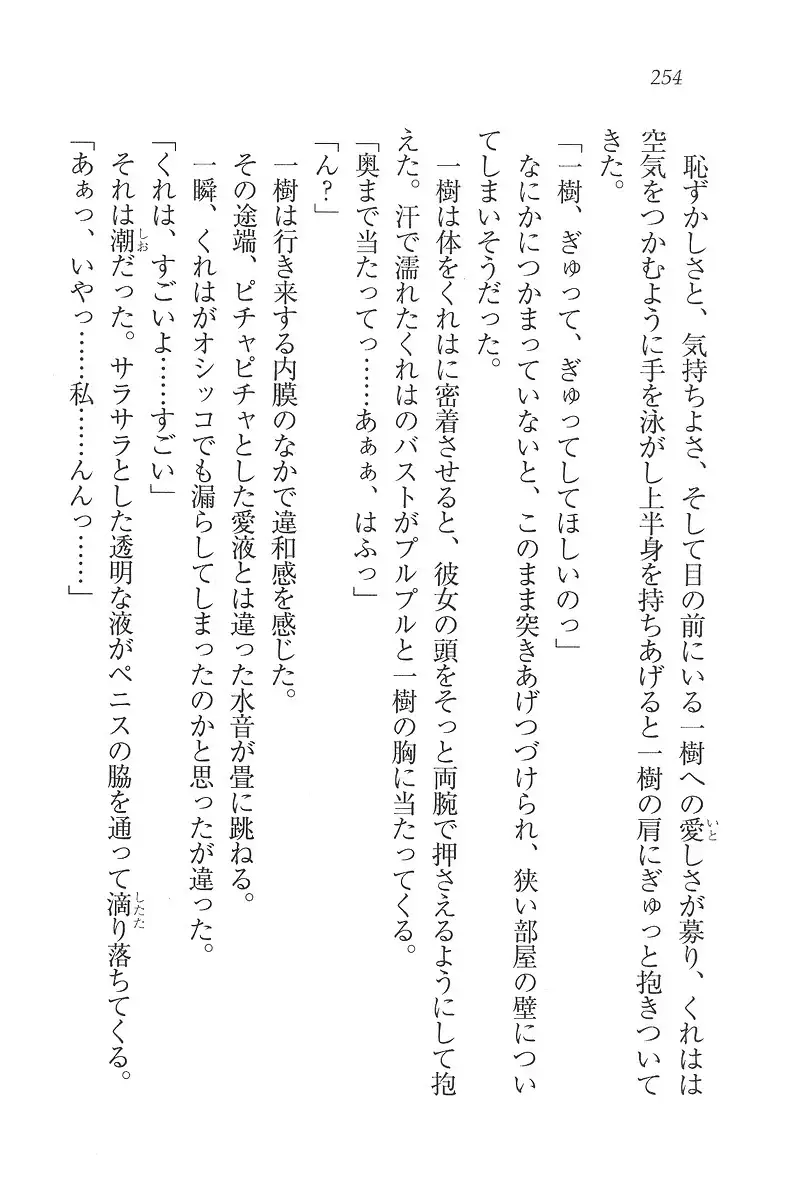 254
恥ずかしさと、気持ちよさ、そして目の前にいる一樹への愛しさが募り、くれはは
いと
空気をつかむように手を泳がし上半身を持ちあげると一樹の肩にぎゅっと抱きついて
きた。
「一樹、ぎゅって、ぎゅってしてほしいのっ」
なにかにつかまっていないと、このまま突きあげつづけられ、狭い部屋の壁につい
てしまいそうだった。
一樹は体をくれはに密着させると、彼女の頭をそっと両腕で押さえるようにして抱
えた。汗で濡れたくれはのバストがプルプルと一樹の胸に当たってくる。
「奥まで当たってっ……あぁぁ、はふっ」
「ん？」
一樹は行き来する内膜のなかで違和感を感じた。
その途端、ピチャピチャとした愛液とは違った水音が畳に跳ねる。
一瞬、くれはがオシッコでも漏らしてしまったのかと思ったが違った。
「くれは、すごいよ……すごい」
それは潮だった。サラサラとした透明な液がペニスの脇を通って滴り落ちてくる。
しお
したた
「あぁっ、いやっ……私……んんっ……」